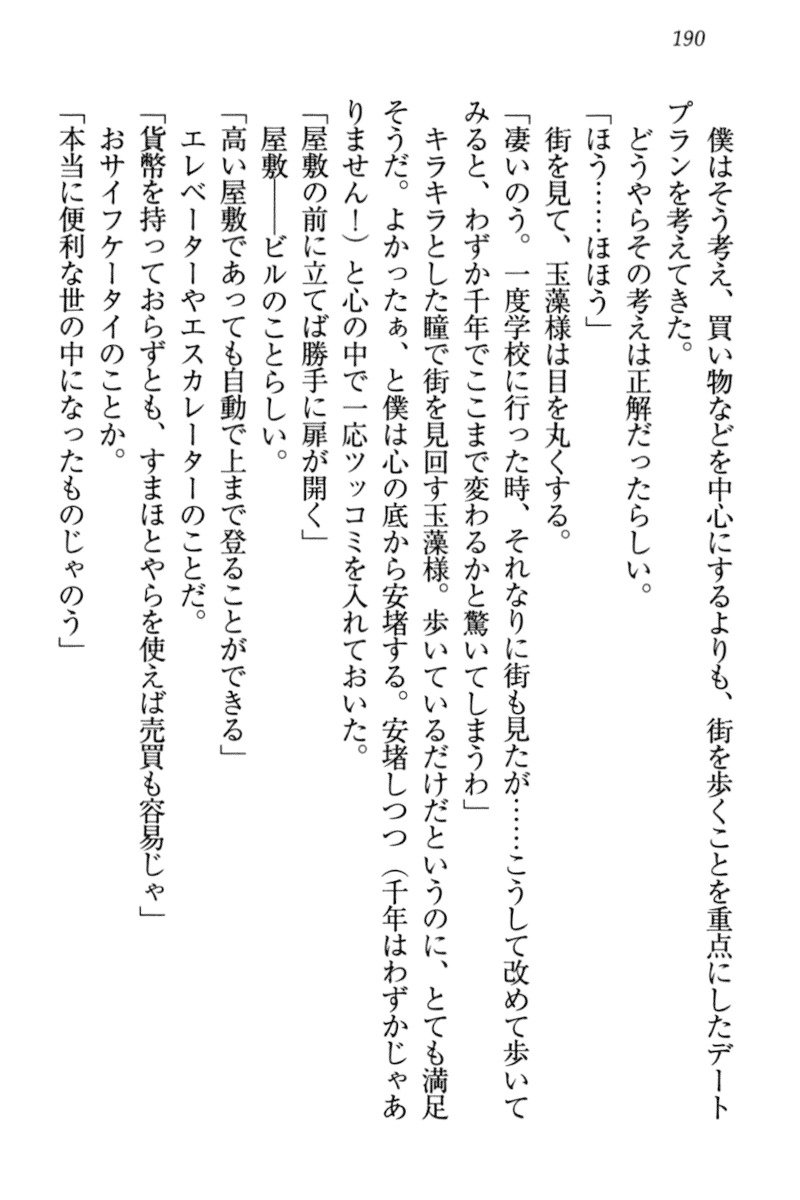 190
僕はそう考え、買い物などを中心にするよりも、街を歩くことを重点にしたデート
プランを考えてきた。
どうやらその考えは正解だったらしい。
「ほう……ほほう」
街を見て、玉藻様は目を丸くする。
「凄いのう。一度学校に行った時、それなりに街も見たが……こうして改めて歩いて
みると、わずか千年でここまで変わるかと驚いてしまうわ」
キラキラとした瞳で街を見回す玉藻様。歩いているだけだというのに、とても満足
そうだ。よかったぁ、と僕は心の底から安堵する。安堵しつつ（千年はわずかじゃあ
りません！）と心の中で一応ツッコミを入れておいた。
「屋敷の前に立てば勝手に扉が開く」
屋敷――ビルのことらしい。
「高い屋敷であっても自動で上まで登ることができる」
エレベーターやエスカレーターのことだ。
「貨幣を持っておらずとも、すまほとやらを使えば売買も容易じゃ」
おサイフケータイのことか。
「本当に便利な世の中になったものじゃのう」